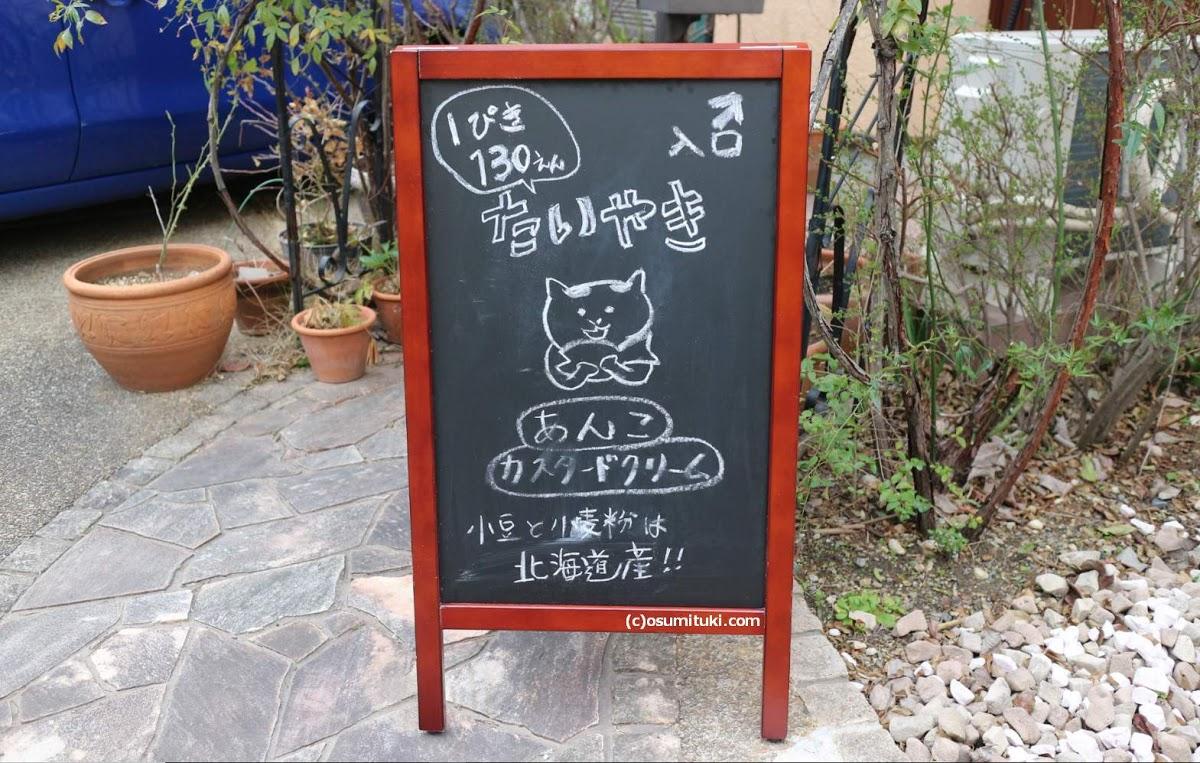 1ぴき
130えん
入口
たいやき
あんこ
カスタードクリーム
小豆と小麦粉は
北海道産!!
(c)osumituki.com